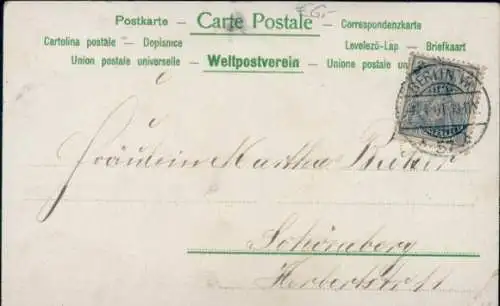 Postkarte — Carte Postale — Correspondenzkarte
Cartolina postale — Dopisnice Levelező-Lap — Briefkaart
Union postale universelle — Weltpostverein — Unione postale un
BERLIN W
57
Fräulein Martha
Schöneberg
Herbertstr 11